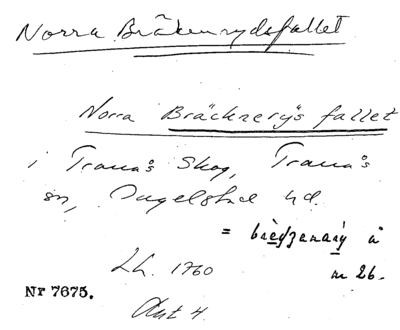 Norra Bräkenrydsfallet
Norra Bräcknerÿs fallet
i Tranås Skog, Tranås
sn, Ingelstad hd.
=
Lh. 1760 m 26.
Nr 7675.
Akt 4